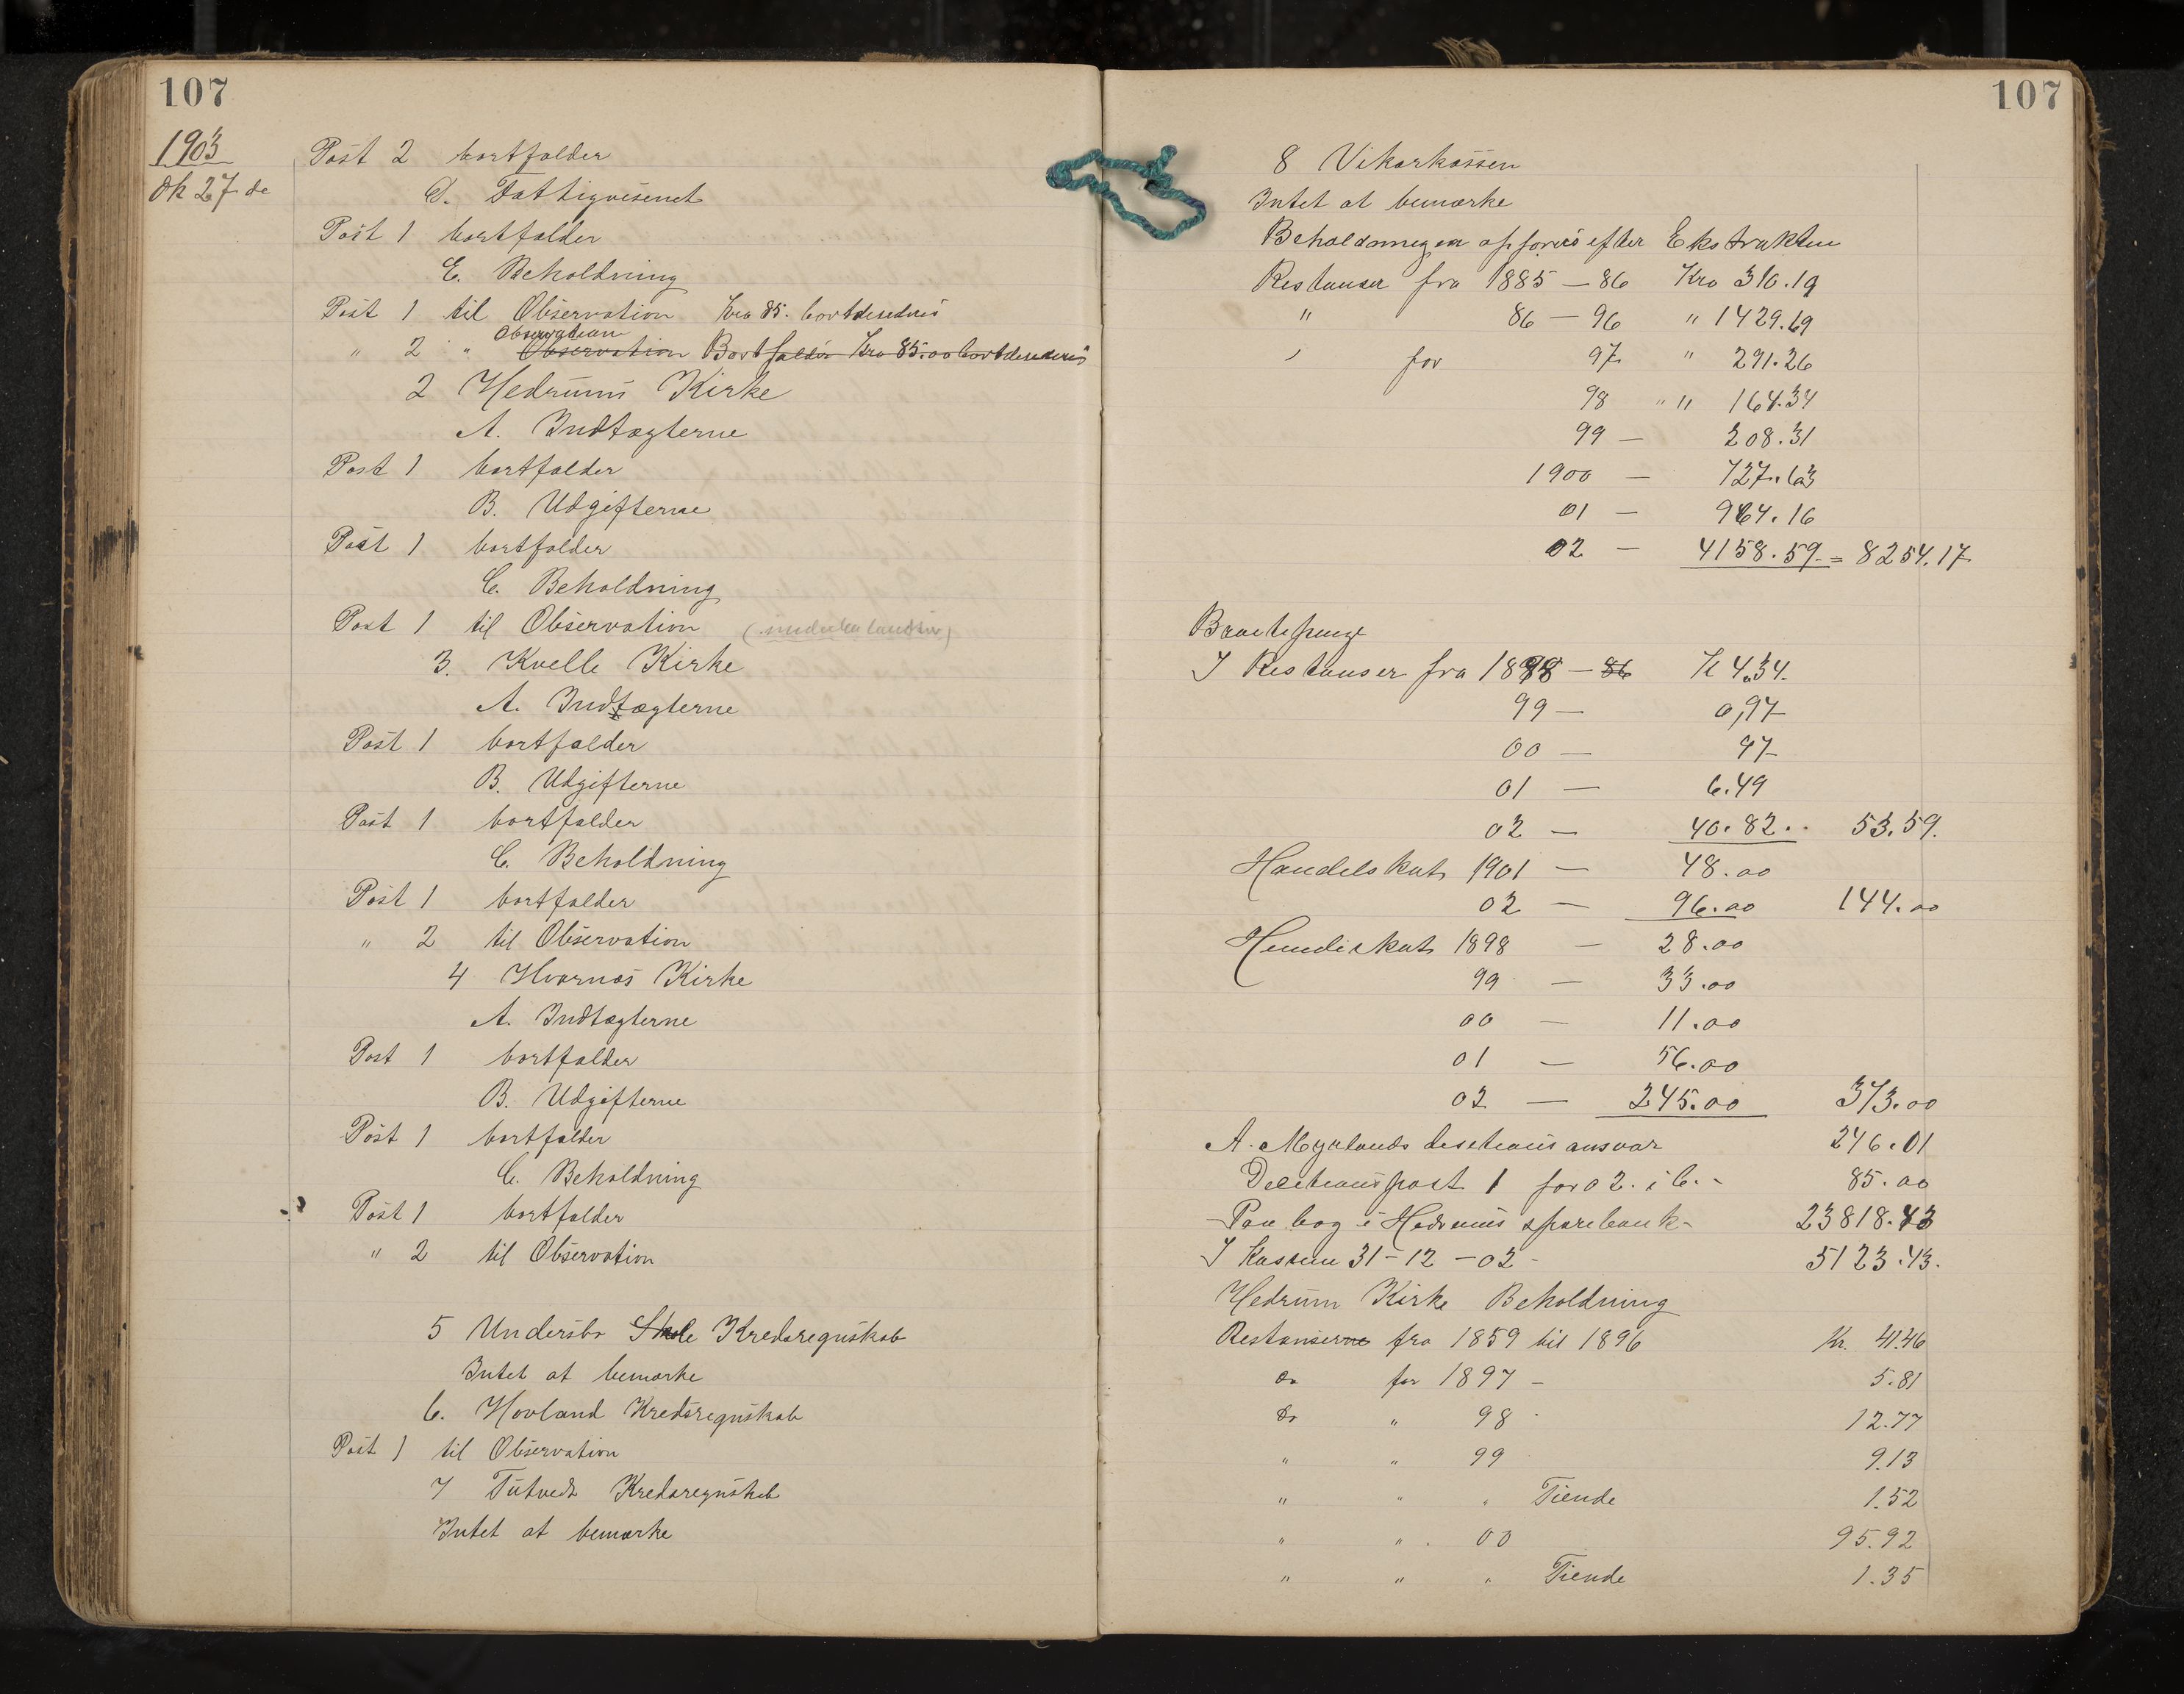 107
1903
Ok 27 de
Post 2 bortfalder
D. Fattigvesenet
Post 1 bortfalder
E. Beholdning
Post 1 til Observation Kro 85. bortdesedires
" 2 " Observation
Observation Bortfalder Kro 85.00
2 Hedrums Kirke
A. Indtægterne
Post 1 bortfalder
B. Udgifterne
Post 1 bortfalder
C. Beholdning
Post 1 til Observation
3. Kvelle Kirke
A. Indtægterne
Post 1 bortfalder
B. Udgifterne
Post 1 bortfalder
C. Beholdning
Post 1 bortfalder
" 2 til Observation
4 Hvarnes Kirke
A. Indtægterne
Post 1 bortfalder
B. Udgifterne
Post 1 bortfalder
C. Beholdning
Post 1 bortfalder
" 2 til Observation
5 Undersbo Skole Kredsregnskab
Intet at bemærke
6. Hovland Kredsregnskab
Post 1 til Observation
7 Tutvedt Kredsregnskab
Intet at bemærke
107
8 Vikarkassen
Intet at bemærke
Beholdningen opføres efter Ekstrakten
Restanser fra 1885 – 86 Kro 310.19
" 86 – 96 " 1429.69
" for 97 " 291.26
98 " " 164.34
99 – 208.31
1900 – 727.63
01 – 964.16
02 – 4158.59 = 8254.17
Braatepenge
I Restanser fra 1898 – 86 K 4.34.
99 – 0,97
00 – 97
01 – 6.49
02 – 40.82.. 53.59.
Handelskat 1901 – 48.00
02 – 96.00 144.00
Hundeskat 1898 – 28.00
99 – 33.00
00 – 11.00
01 – 56.00
02 – 245.00 373.00
A. Myrlands ansvar 246.01
post 1 for 02. i C. - 85.00
Paa bog i Hedrums sparebank - 23818.43
I Kassen 31–12–02 - 5123.43.
Hedrum Kirke Beholdning
Restanserne fra 1859 til 1896 Kr. 41.46
Do for 1897 – 5.81
Do " 98 12.77
" " 99 9.13
" " " Tiende 1.52
" " . 00 95.92
" " " Tiende 1.35